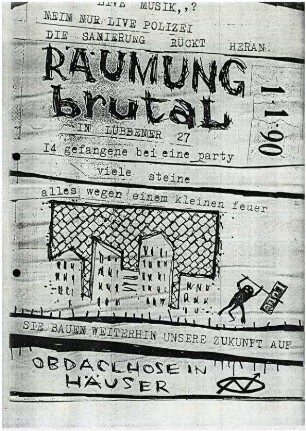 LIVE MUSIK,,?
NEIN NUR LIVE POLIZEI
DIE SANIERUNG RÜCKT HERAN
RÄUMUNG
brutal
1·1·90
IN LÜBBENER 27
14 gefangene bei eine party
viele steine
alles wegen einem kleinen feuer
SIE BAUEN WEITERHIN UNSERE ZUKUNFT AUF
OBDACLHOSE IN
HÄUSER